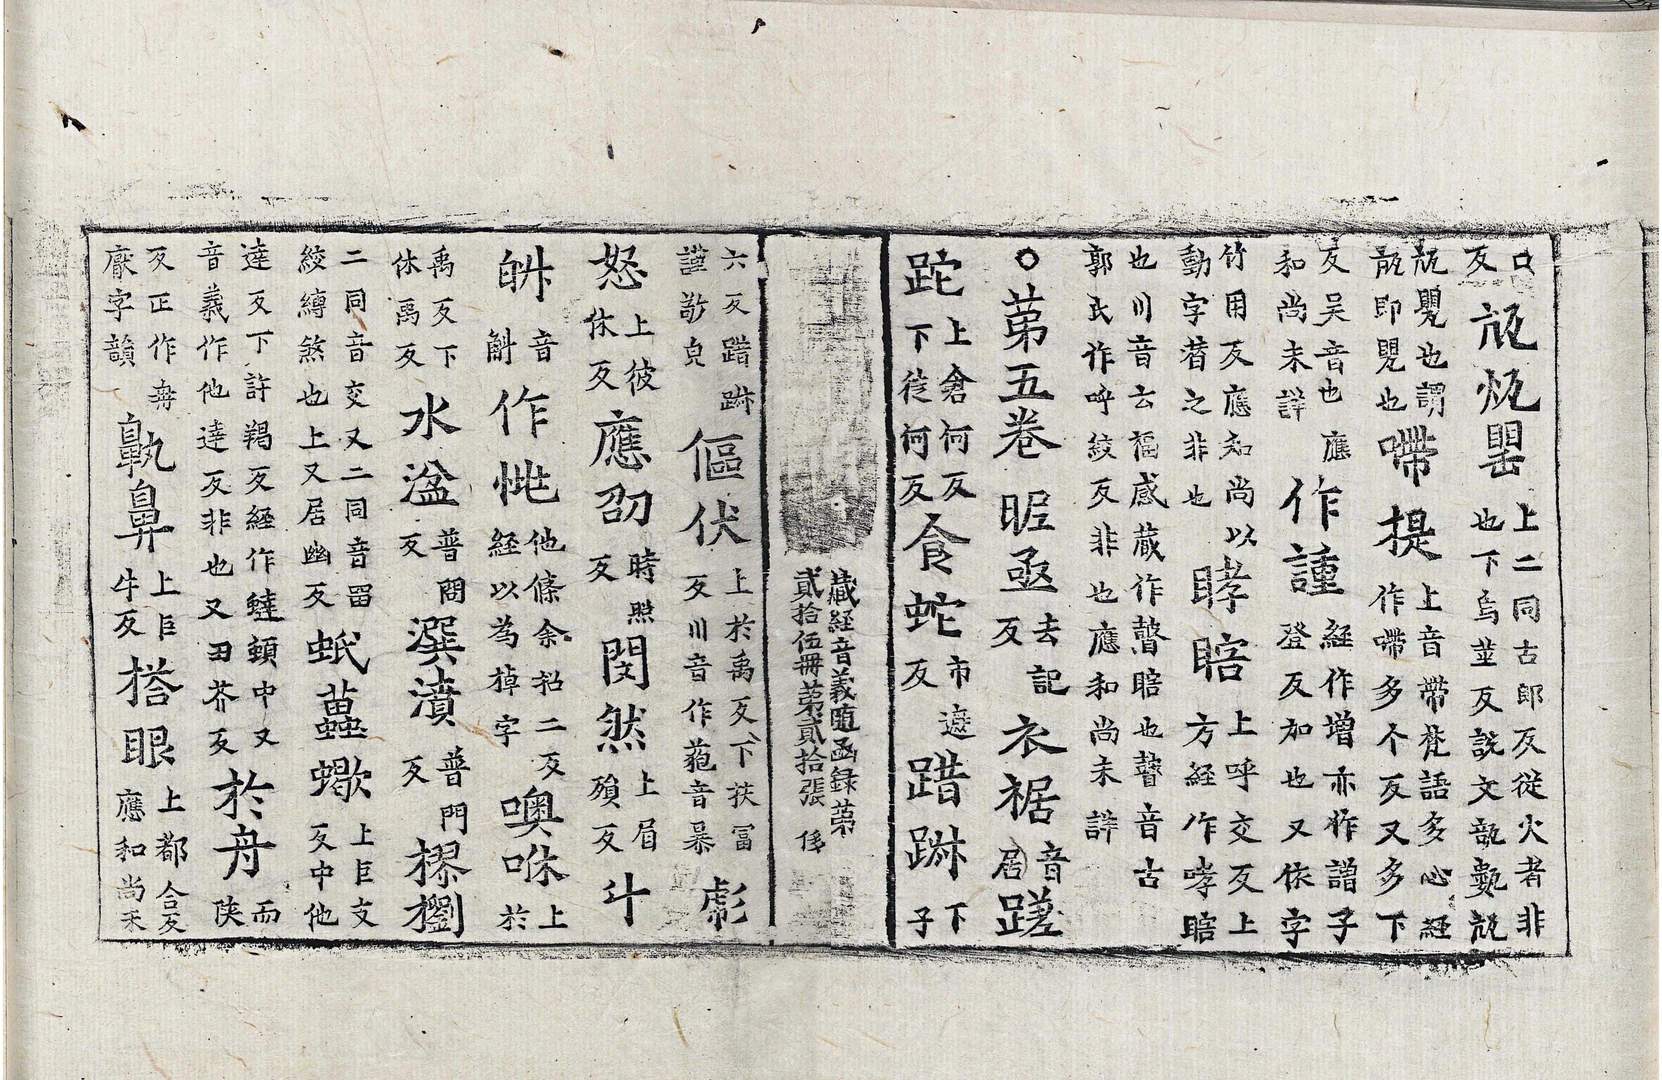 口反 瓨㼚罌 上二同古郎反從火者非也下烏莖反說文瓨甖瓨
瓨甖也謂瓨即甖也 㗣提 上音帶梵語多心經作㗣多个反又多下
反吴音也應和尚未詳 作謹 經作增亦作譄子登反加也又依字
竹用反應知尚以動字替之非也 哮瞎 上呼交反上方經作哮瞎
也川音云福感藏作瞽瞎也瞽音古郭氏作呼絞反非也應和尚未詳
○第五卷 昵亟 去記反 衣裾 音居 蹉
跎 上倉何反下徒何反 食蛇 市遮反 踖跡 下子
藏經音義隨函録第貳拾伍冊第貳拾張
六反踖跡謹敬皃 傴伏 上於禹反下扶冨反川音作菢音暴 彪
怒 上彼休反 應劭 時照反 閔然 上眉殞反 斗
斛 音斛 作恌 他條余招二反經以為掉字 噢咻 上於
禹反下休禹反 水湓 普悶反 潠濆 普門反 樛摎
二同音交又二同音畱絞縛煞也上又居幽反 蚔䘇蠍 上巨支反中他
達反下許羯反経作蛙頼中又音義作他達反非也又丑芥反 於舟 而陕
反正作冄厭字韻 鼽鼻 上巨牛反 㯚眼 上都合反應和尚未